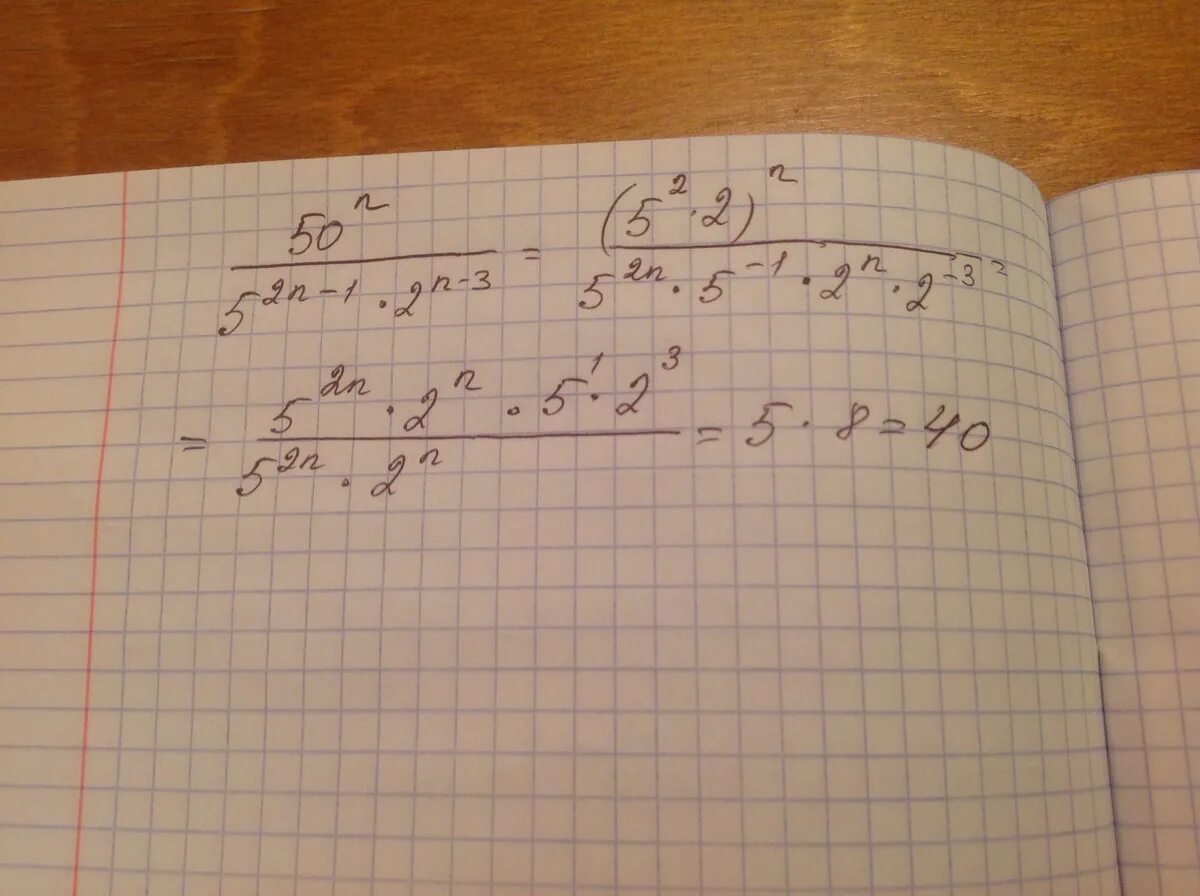 50ⁿ / (5²ⁿ⁻¹ · 2ⁿ⁻³) = (5² · 2)ⁿ / (5²ⁿ · 5⁻¹ · 2ⁿ · 2⁻³) =
= (5²ⁿ · 2ⁿ · 5¹ · 2³) / (5²ⁿ · 2ⁿ) = 5 · 8 = 40